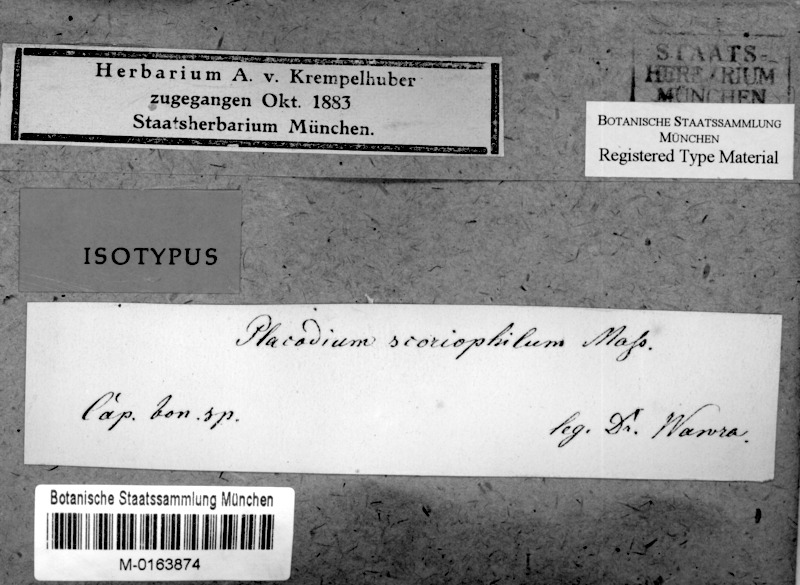 Herbarium A. v. Krempelhuber
zugegangen Okt. 1883
Staatsherbarium München.
STAATS-
HERBARIUM
MÜNCHEN
BOTANISCHE STAATSSAMMLUNG
MÜNCHEN
Registered Type Material
ISOTYPUS
Placodium scoriophilum Mass.
Cap. bon. sp.
leg. Dr. Wawra.
Botanische Staatssammlung München
M-0163874